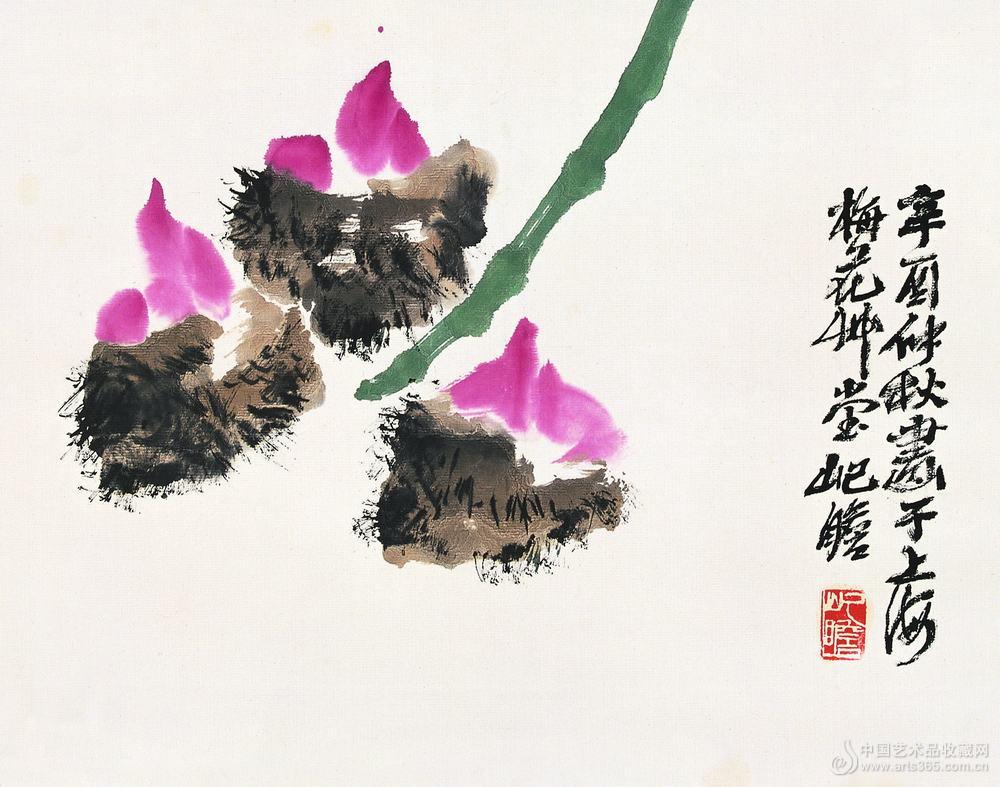 辛酉仲秋畫于上海
梅花艸堂屺瞻
屺瞻
中国艺术品收藏网
www.arts365.com.cn